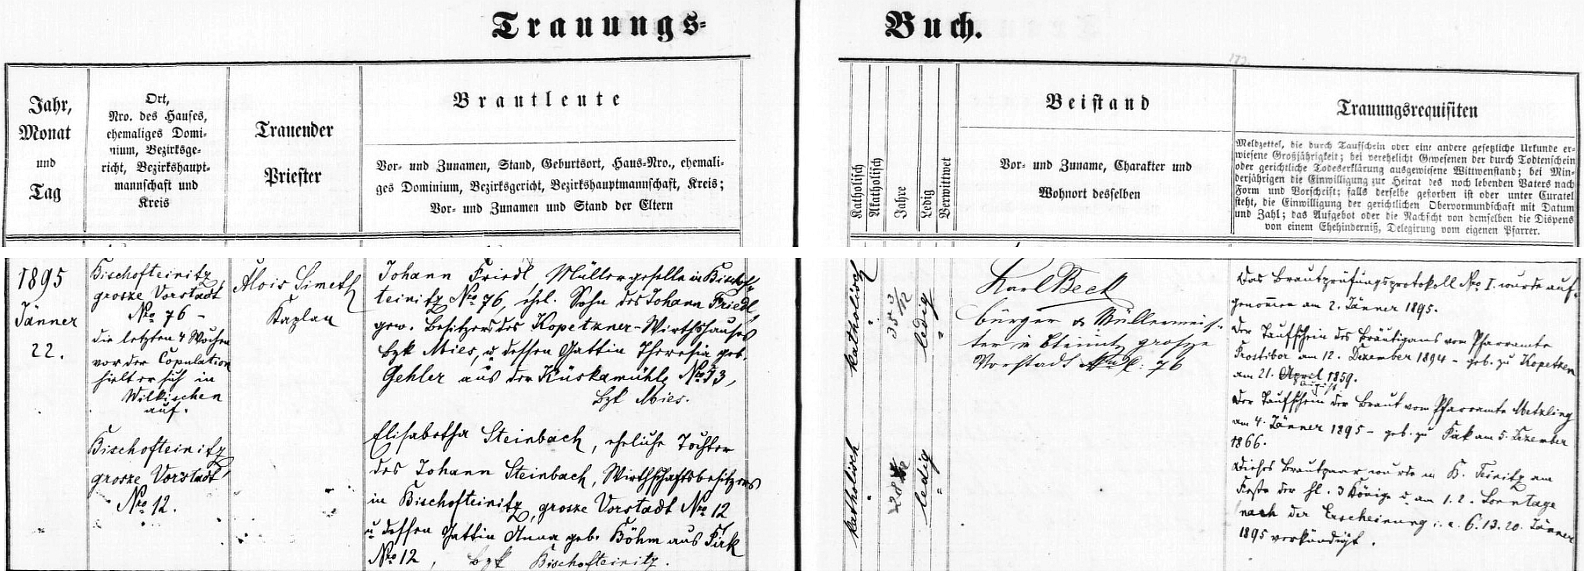 Trauungs-
Buch.
Jahr,
Monat
und
Tag
Ort,
Nro. des Hauses,
ehemaliges Domi-
nium, Bezirksge-
richt, Bezirkshaupt-
mannschaft und
Kreis
Trauender
Priester
Brautleute
Vor- und Zunamen, Stand, Geburtsort, Haus-Nro., ehemali-
ges Dominium, Bezirksgericht, Bezirkshauptmannschaft, Kreis;
Vor- und Zunamen und Stand der Eltern
Katholisch
Akatholisch
Jahre
Ledig
Verwittwet
Beistand
Vor- und Zuname, Charakter und
Wohnort desselben
Trauungsrequisiten
Meldzettel, die durch Taufschein oder eine andere gesetzliche Urkunde er-
wiesene Großjährigkeit; bei verehelicht Gewesenen der durch Todtenschein
oder gerichtliche Todeserklärung ausgewiesene Wittwenstand; bei Min-
derjährigen die Einwilligung zur Heirat des noch lebenden Vaters nach
Form und Vorschrift; falls derselbe gestorben ist oder unter Curatel
steht, die Einwilligung der gerichtlichen Obervormundschaft mit Datum
und Zahl; das Aufgebot oder die Nachsicht von demselben die Dispens
von einem Ehehinderniß, Delegirung vom eigenen Pfarrer.
1895
Jänner
22.
Bischofteinitz
grosze Vorstadt
Nro 76 -
die letzten 4 Wochen
vor der Copulation
hielt er sich in
Wilkischen
auf.
Bischofteinitz
grosze Vorstadt
Nro 12.
Alois Simeth
Kaplan
Johann Friedl, Müllergeselle in Bischof-
teinitz Nro 76, ehel. Sohn des Johann Friedl,
gew. Besitzers des Kopetzner-Wirthshauses
Bzk Mies, u. dessen Gattin Theresia geb.
Gehler aus der Küskamühle Nro 73,
Bzk Mies.
Elisabetha Steinbach, eheliche Tochter
des Johann Steinbach, Wirthschaftsbesitzers
in Bischofteinitz, grosze Vorstadt Nro 12
u. dessen Gattin Anna geb. Böhm aus Pirk
Nro 12, Bzk Bischofteinitz.
katholisch
35
ledig
katholisch
28
ledig
Karl Beck
bürger & Müllermeis-
ter in Teinitz grosze
Vorstadt 76
Das Brautprüfungsprotokoll Nro I. wurde auf-
genommen am 2. Jänner 1895.
Der Taufschein des Bräutigams vom Pfarramte
Prostibor am 12. Dezember 1894 - geb. zu Kopetzen
am 21. April August 1859.
Der Taufschein der Braut vom Pfarramte Metzling
am 4. Jänner 1895 - geb. zu Pirk am 5. Dezember
1866.
Dieses Brautpaar wurde in B. Teinitz am
Feste der hl. 3 Könige u. am 1. 2. Sonntage
nach der Erscheinung i. e. 6. 13. 20. Jänner
1895 verkündigt.